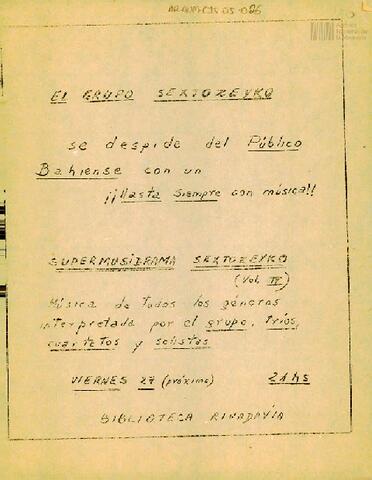 EL GRUPO SEXTOZEYKO
se despide del Público
Bahiense con un
¡¡Hasta Siempre con música!!
SUPERMUSIDRAMA SEXTOZEYKO
(Vol. IV)
Música de todos los géneros
interpretada por el grupo, tríos,
cuartetos y solistas
VIERNES 27 (próximo) 21 hs
BIBLIOTECA RIVADAVIA